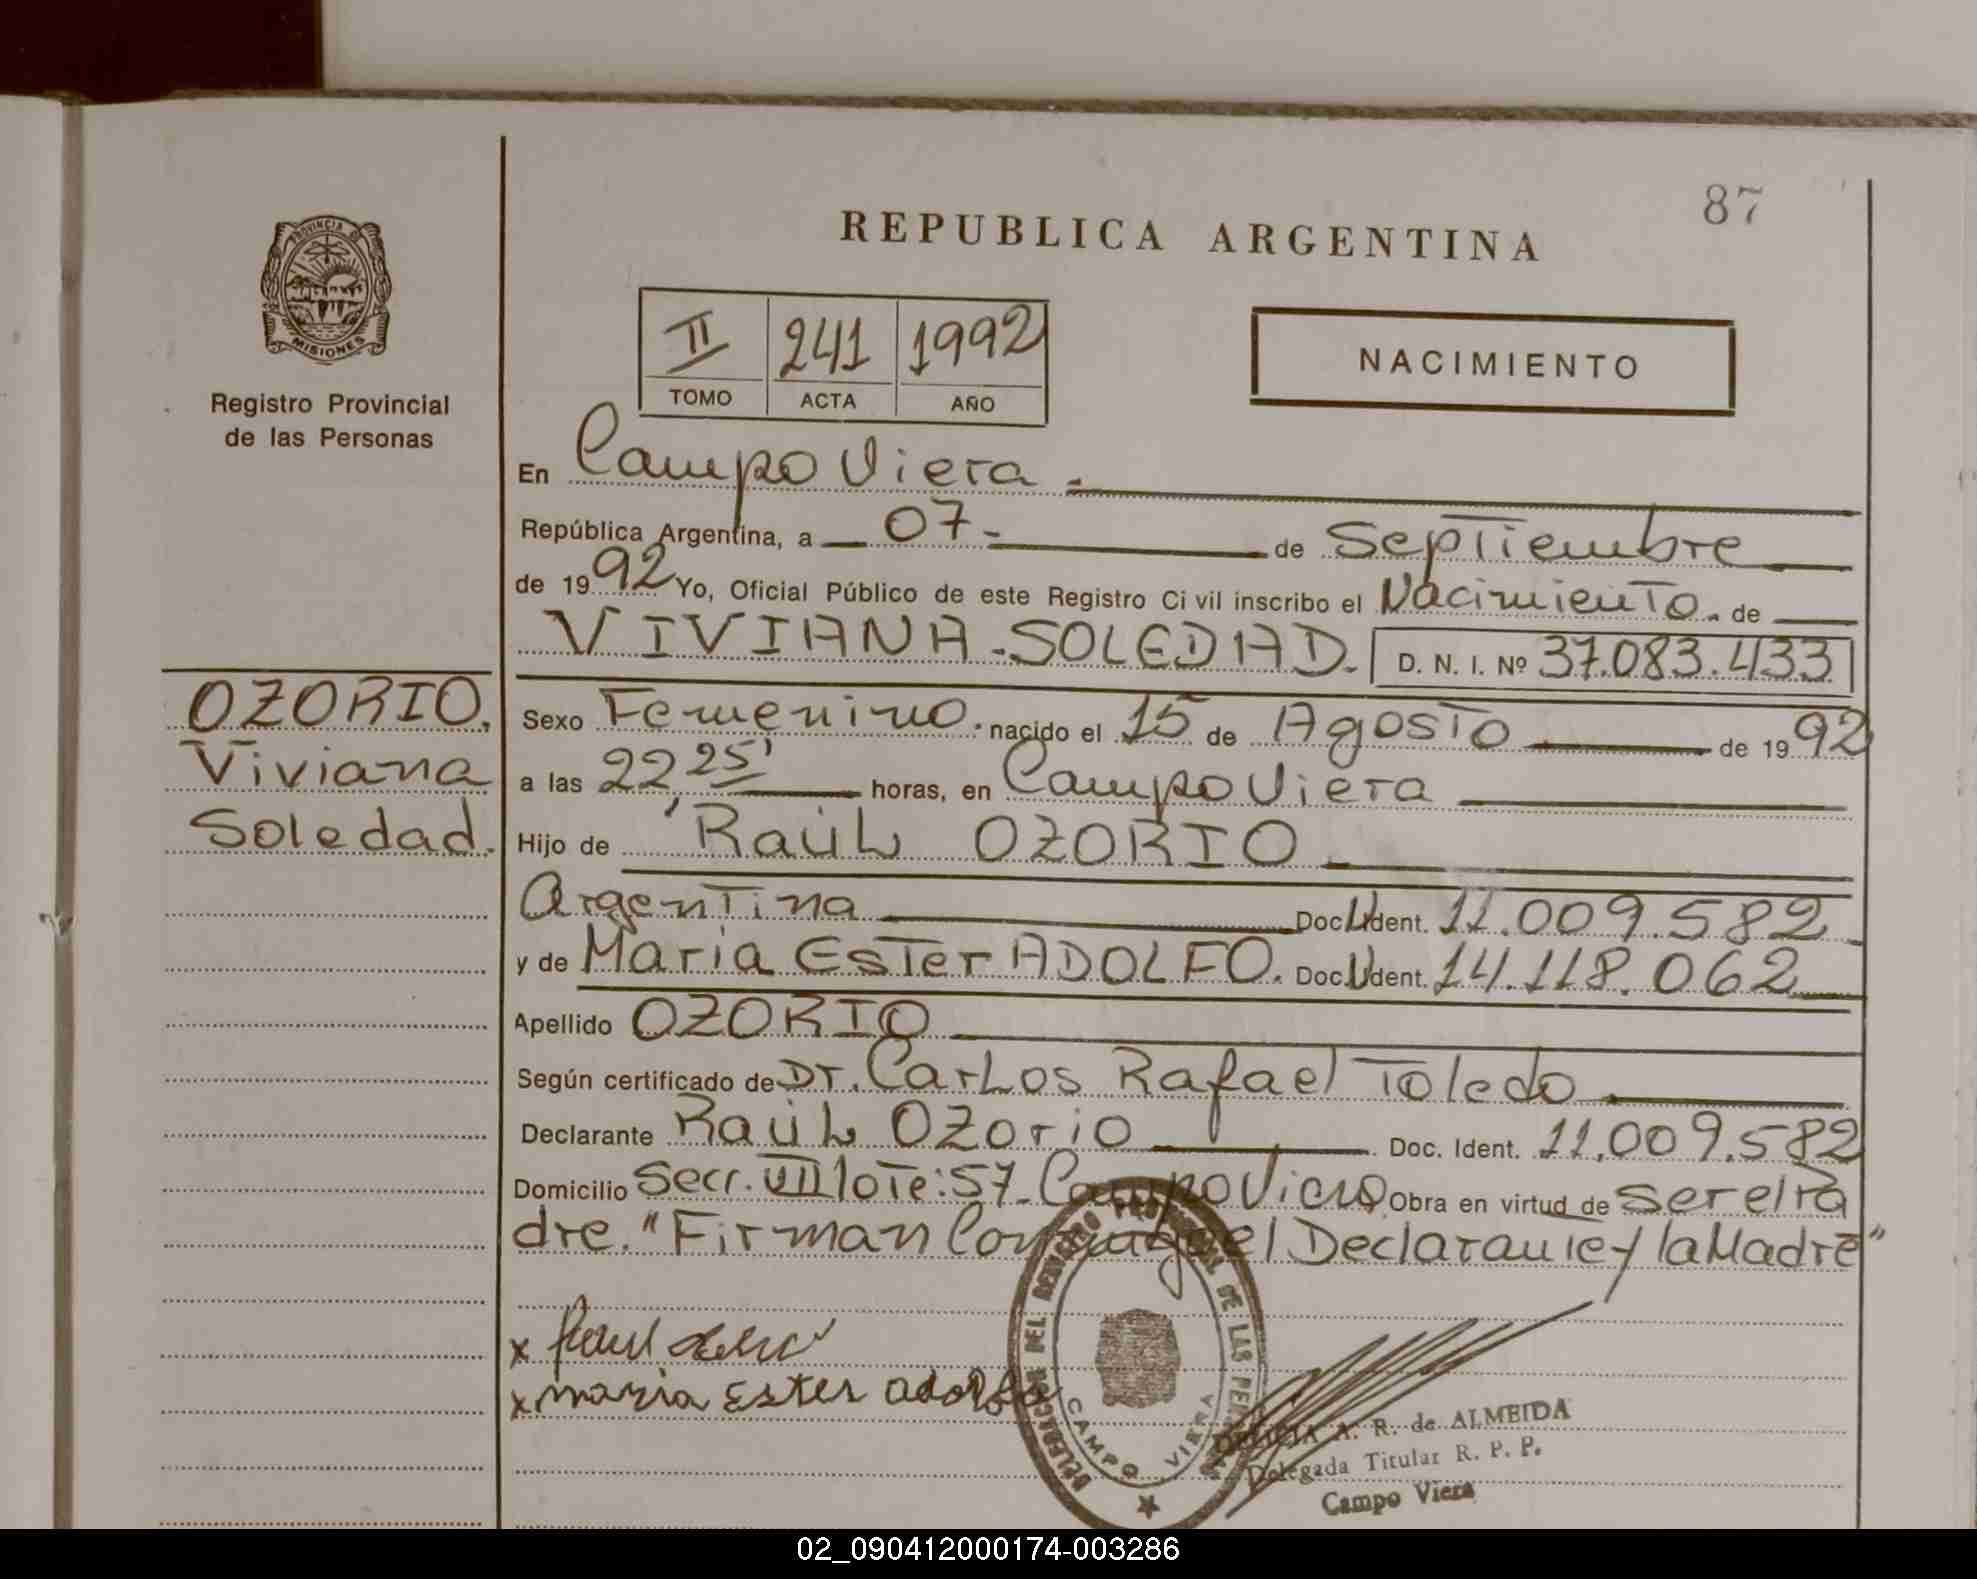 87
REPUBLICA ARGENTINA
PROVINCIA DE
MISIONES
Registro Provincial
de las Personas
II 241 1992
TOMO ACTA AÑO
NACIMIENTO
En Campo Viera.
República Argentina, a 07 - de Septiembre
de 1992 Yo, Oficial Público de este Registro Civil inscribo el Nacimiento. de
VIVIANA - SOLEDAD. D. N. I. Nº 37.083.433
OZORIO,
Viviana
Soledad.
Sexo Femenino. nacido el 15 de Agosto de 1992
a las 22 25' horas, en Campo Viera
Hijo de Raúl OZORIO
Argentina Doc. Ident. 11.009.582
y de Maria Ester ADOLFO. Doc. Ident. 14.118.062
Apellido OZORIO
Según certificado de Dr. Carlos Rafael Toledo
Declarante Raúl Ozorio Doc. Ident. 11.009.582
Domicilio Secc. VII lote: 57 - Campo Viera Obra en virtud de ser el Pa
dre. "Firman Conmigo el Declarante y la Madre"
x Raul
x maria Ester adolfo
DELEGACION DEL REGISTRO PROVINCIAL DE LAS PERSONAS
CAMPO VIERA
A. R. de ALMEIDA
Delegada Titular R. P. P.
Campo Viera
02_090412000174-003286